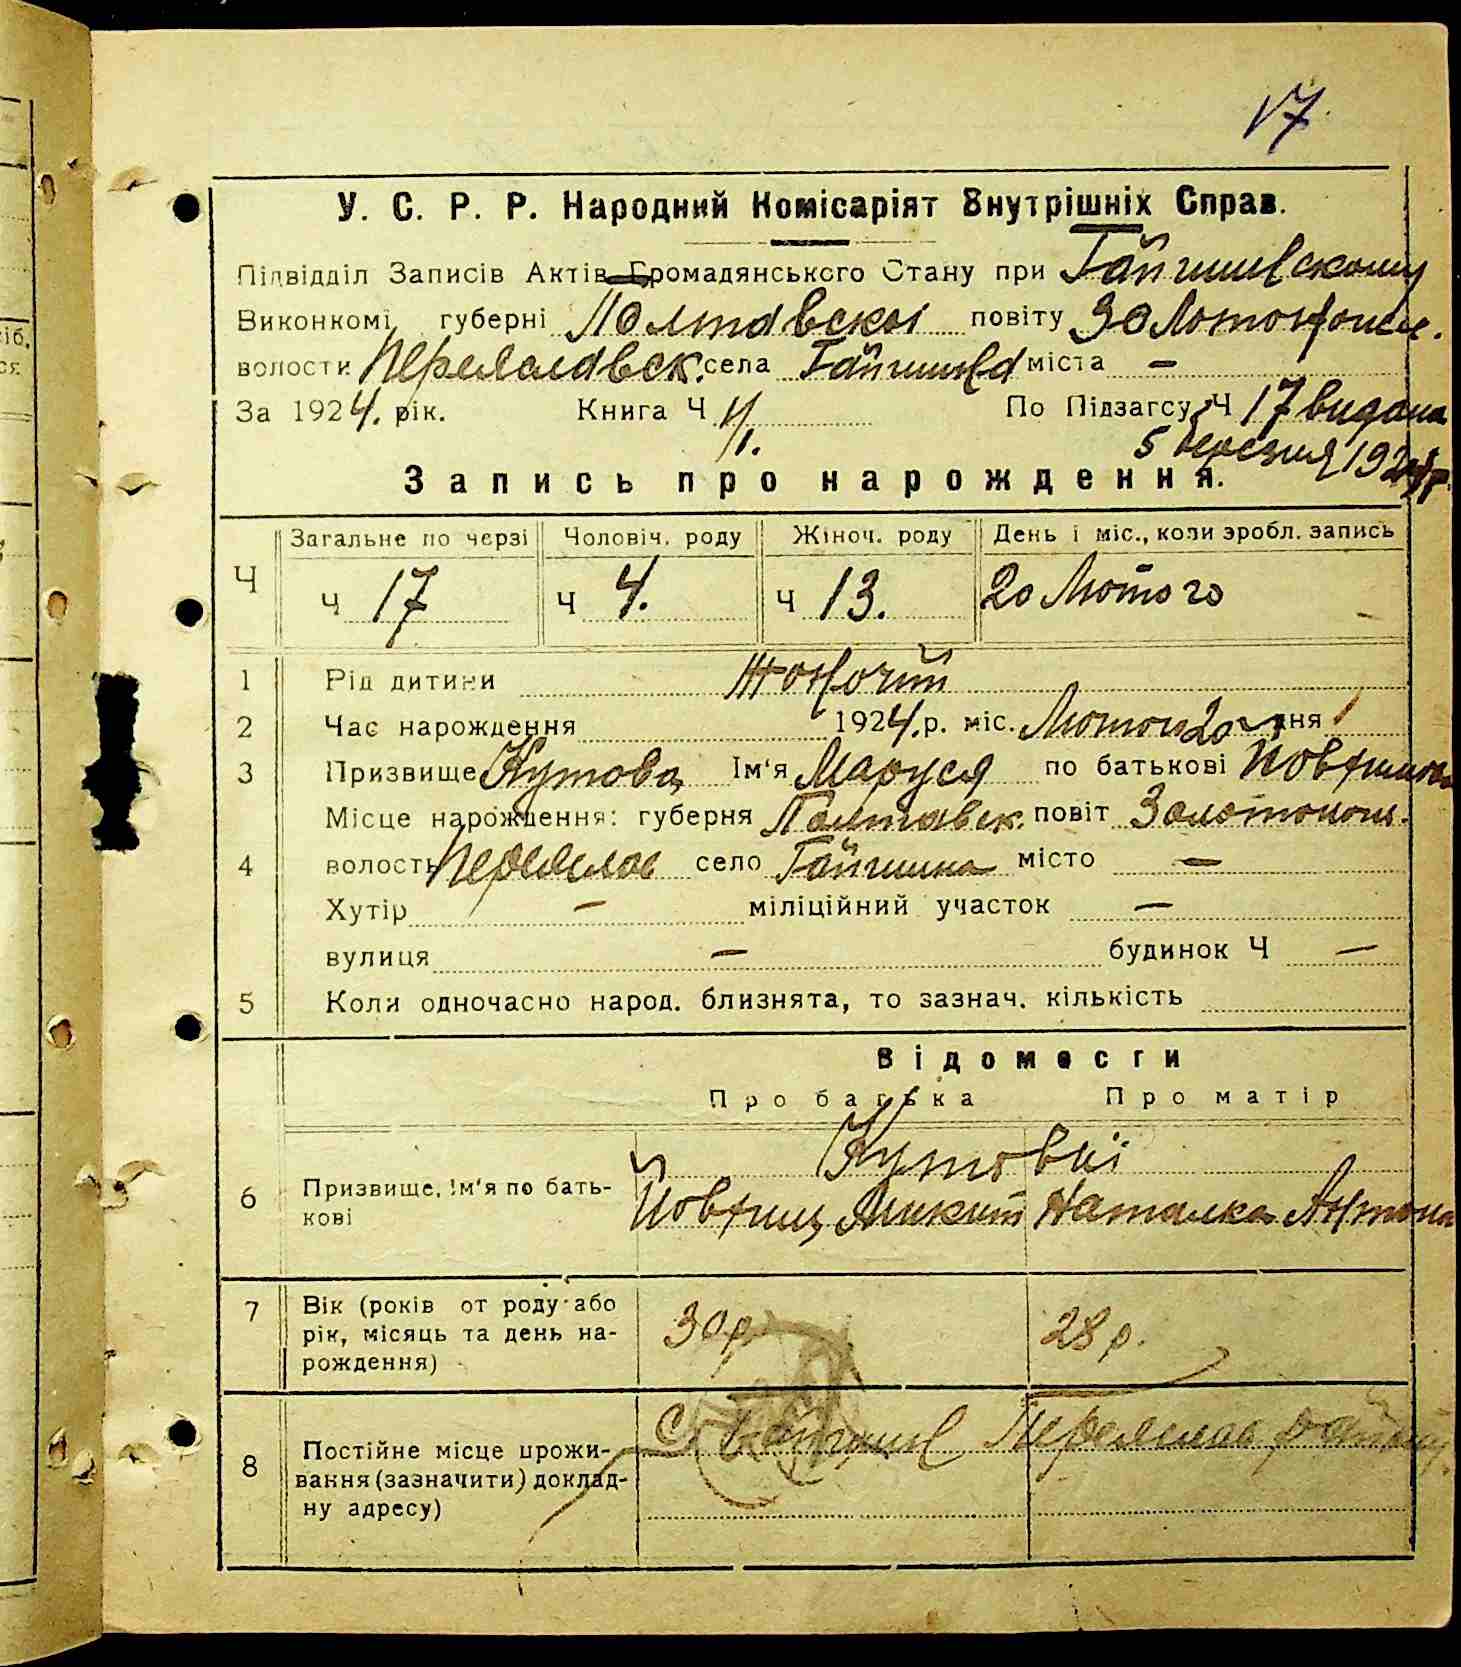 17
У. С. Р. Р. Народний Комісаріят Внутрішніх Справ.
Підвідділ Записів Актів Громадянського Стану при Гайшинскому
Виконкомі губерні Полтавскої повіту Золотонош.
волости Переяславск. села Гайшина міста —
За 1924. рік. Книга Ч 1/1. По Підзагсу Ч 17 видана
5 березня 1924 р.
Запис про народження.
Ч Загальне по черзі Чоловіч. роду Жіноч. роду День і міс., коли зробл. запись
Ч 17 Ч 4. Ч 13. 20 Лютого
1 Рід дитини Жоночий
2 Час народження 1924. р. міс. Лютого 20 дня
3 Призвище Кутова Ім'я Маруся по батькові
Місце народження: губерня Полтавск. повіт Золотонош.
4 волость Переяслав село Гайшина місто —
Хутір — міліційний участок —
вулиця — будинок Ч —
5 Коли одночасно народ. близнята, то зазнач. кількість
Відомости
Про батька Про матір
Кутовиї
6 Призвище, ім'я по бать-
кові
Микит Наталка Антона
7 Вік (років от роду або
рік, місяць та день на-
рождення)
30 р. 28 р.
8 Постійне місце прожи-
вання (зазначити) доклад-
ну адресу)
С. Гайшин Переяслав району